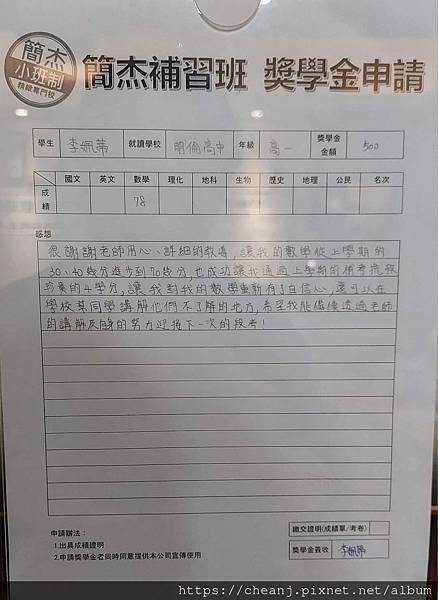 簡杰
小班制
精緻專門校
簡杰補習班 獎學金申請
學生 李姵蓁 就讀學校 明倫高中 年級 高一 獎學金金額 500
國文 英文 數學 理化 地科 生物 歷史 地理 公民 名次
成績 78
感想
很謝謝老師用心、詳細的教導，讓我的數學從上學期的
30、40幾分進步到70幾分，也成功讓我通過上學期的補考挽救
珍貴的4學分，讓我對我的數學重新有了自信心，還可以在
學校幫同學講解他們不了解的地方，希望我能繼續透過老師
的講解及自身的努力迎接下一次的段考！
申請辦法：
1.出具成績證明
2.申請獎學金者同時同意提供本公司宣傳使用
繳交證明(成績單/考卷)
獎學金簽收 李姵蓁
https://cheanj.pixnet.net/album